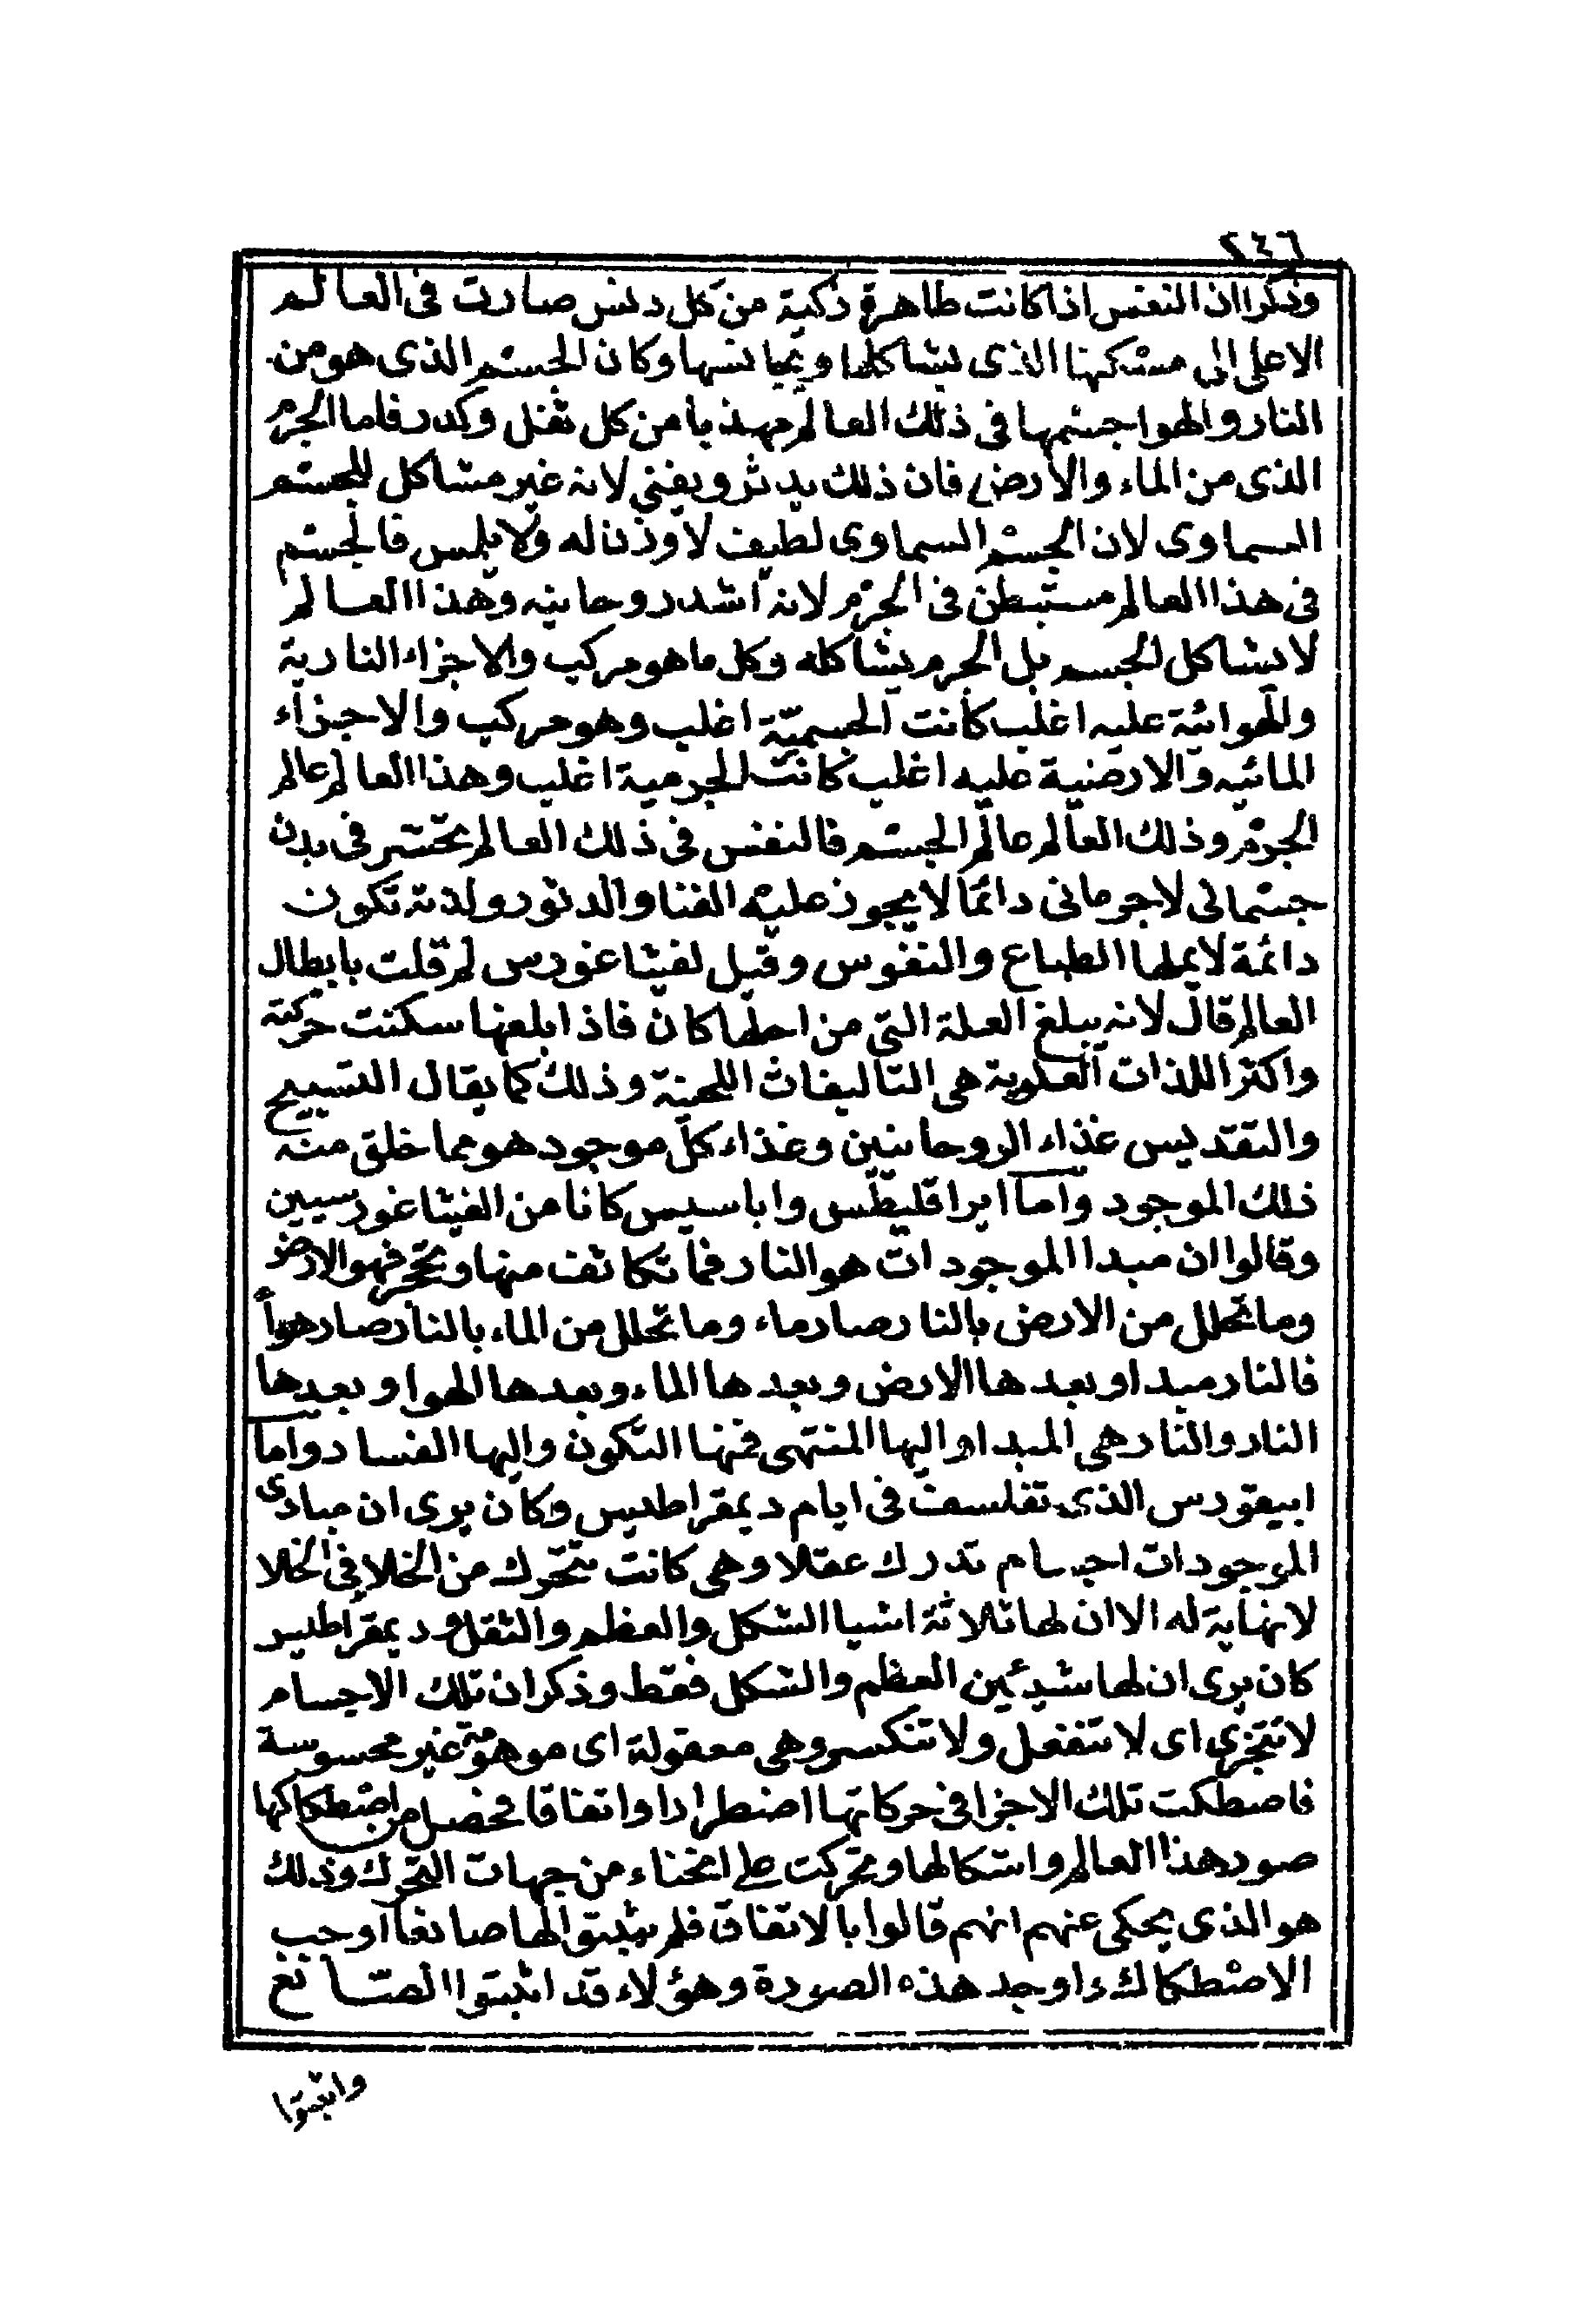 ٢٤٦
وذكرا ان النفس اذا كانت طاهرة زكية من كل دنس صارت فى العالم
الاعلى الى مسكنها الذى يشاكلها ويجانسها وكان الجسم الذى هو من
النار والهوا جسمها فى ذلك العالم مهذبا من كل ثقل وكدر فاما الجرم
الذى من الماء والارض فان ذلك يدثر ويفنى لانه غير مشاكل للجسم
السماوى لان الجسم السماوى لطيف لا وزن له ولا يلمس فالجسم
فى هذا العالم مستبطن فى الجرم لانه اشد روحانيه وهذا العالم
لا يشاكل الجسم بل الجرم يشاكله وكل ما هو مركب والاجزاء النارية
والهوائية عليه اغلب كانت الجسميّة اغلب وهو مركب والاجزاء
المائيه والارضية عليه اغلب كانت الجرمية اغلب وهذا العالم عالم
الجرم وذلك العالم عالم الجسم فالنفس فى ذلك العالم تحشر فى بدن
جسمانى لا جرمانى دائما لا يجوز عليه الفنا والدثور ولذته تكون
دائمة لا يملها الطباع والنفوس وقيل لفيثاغورس لم قلت بابطال
العالم قال لانه يبلغ العلة التى من اجلها كان فاذا بلغها سكنت حركته
واكثر اللذات العلوية هى التاليفات اللحنية وذلك كما يقال التسبيح
والتقديس غذاء الروحانيين وغذاء كل موجود هو مما خلق منه
ذلك الموجود واما ايراقليطس واباسيس كانا من الفيثاغورسيين
وقالوا ان مبدا الموجودات هو النار فما تكاثف منها وتحجر فهو الارض
وما تحلل من الارض بالنار صار ماء وما تحلل من الماء بالنار صار هواً
فالنار مبدا وبعدها الارض وبعدها الماء وبعدها الهوا وبعدها
النار والنار هى المبدا واليها المنتهى فمنها التكون واليها الفساد واما
ابيقورس الذى تفلسف فى ايام ديمقراطيس وكان يرى ان مبادى
الموجودات اجسام تدرك عقلا وهى كانت تتحرك من الخلا فى الخلا
لا نهاية له الا ان لها ثلاثة اشيا الشكل والعظم والثقل وديمقراطيس
كان يرى ان لها شيئين العظم والشكل فقط وذكر ان تلك الاجسام
لا تتجزى اى لا تنفعل ولا تنكسر وهى معقولة اى موهومة غير محسوسة
فاصطكت تلك الاجزا فى حركاتها اضطرارا واتفاقا فحصل من اصطكاكها
صور هذا العالم واشكالها وتحركت على انحناء من جهات التحرك وذلك
هو الذى يحكى عنهم انهم قالوا بالاتفاق فلم يثبتوا لها صانعا اوجب
الاصطكاك واوجد هذه الصورة وهؤلاء قد اثبتوا الصانع
واثبتوا